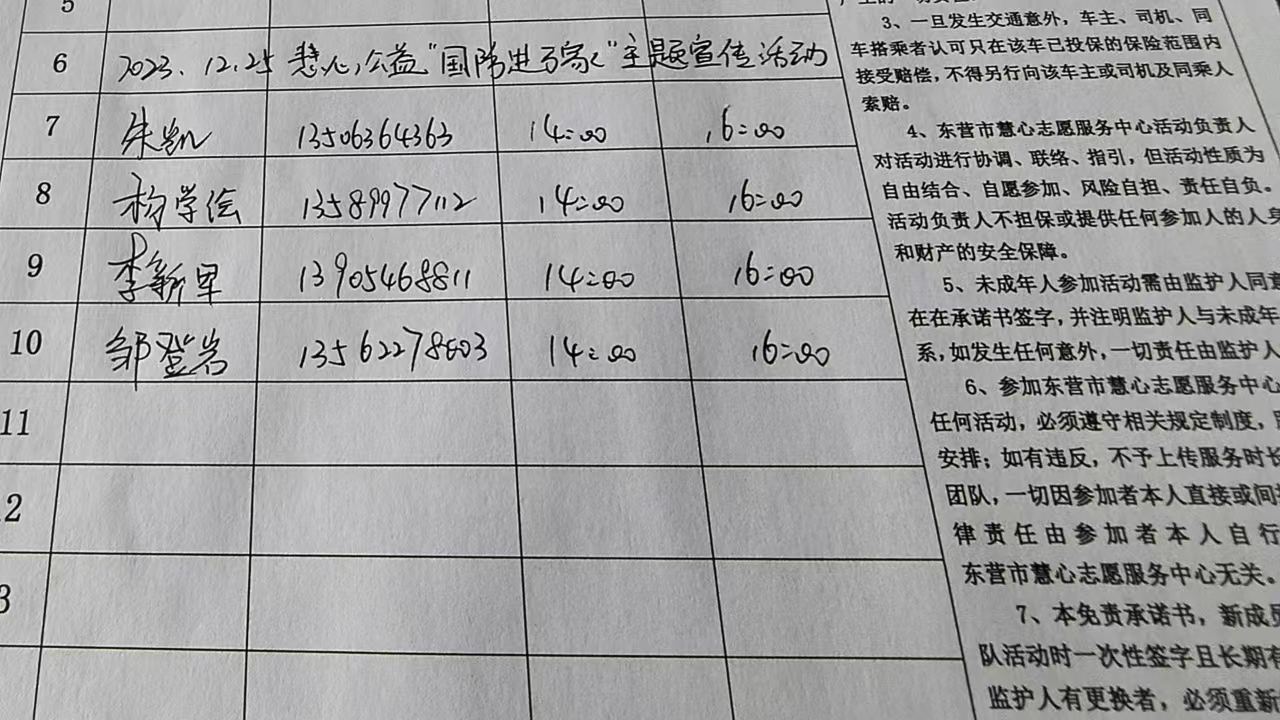 5
6 2023.12.25 慧心公益“国防进万家”主题宣传活动
7 朱凯 13506364363 14:00 16:00
8 杨学绘 13589977112 14:00 16:00
9 李新军 13905468811 14:00 16:00
10 邹登岩 13562278603 14:00 16:00
11
2
3
3、一旦发生交通意外，车主、司机、同
车搭乘者认可只在该车已投保的保险范围内
接受赔偿，不得另行向该车主或司机及同乘人
索赔。
4、东营市慧心志愿服务中心活动负责人
对活动进行协调、联络、指引，但活动性质为
自由结合、自愿参加、风险自担、责任自负。
活动负责人不担保或提供任何参加人的人身
和财产的安全保障。
5、未成年人参加活动需由监护人同意
在在承诺书签字，并注明监护人与未成年
系，如发生任何意外，一切责任由监护人
6、参加东营市慧心志愿服务中心
任何活动，必须遵守相关规定制度，
安排；如有违反，不予上传服务时长
团队，一切因参加者本人直接或间接
律责任由参加者本人自行
东营市慧心志愿服务中心无关。
7、本免责承诺书，新成员
队活动时一次性签字且长期有
监护人有更换者，必须重新